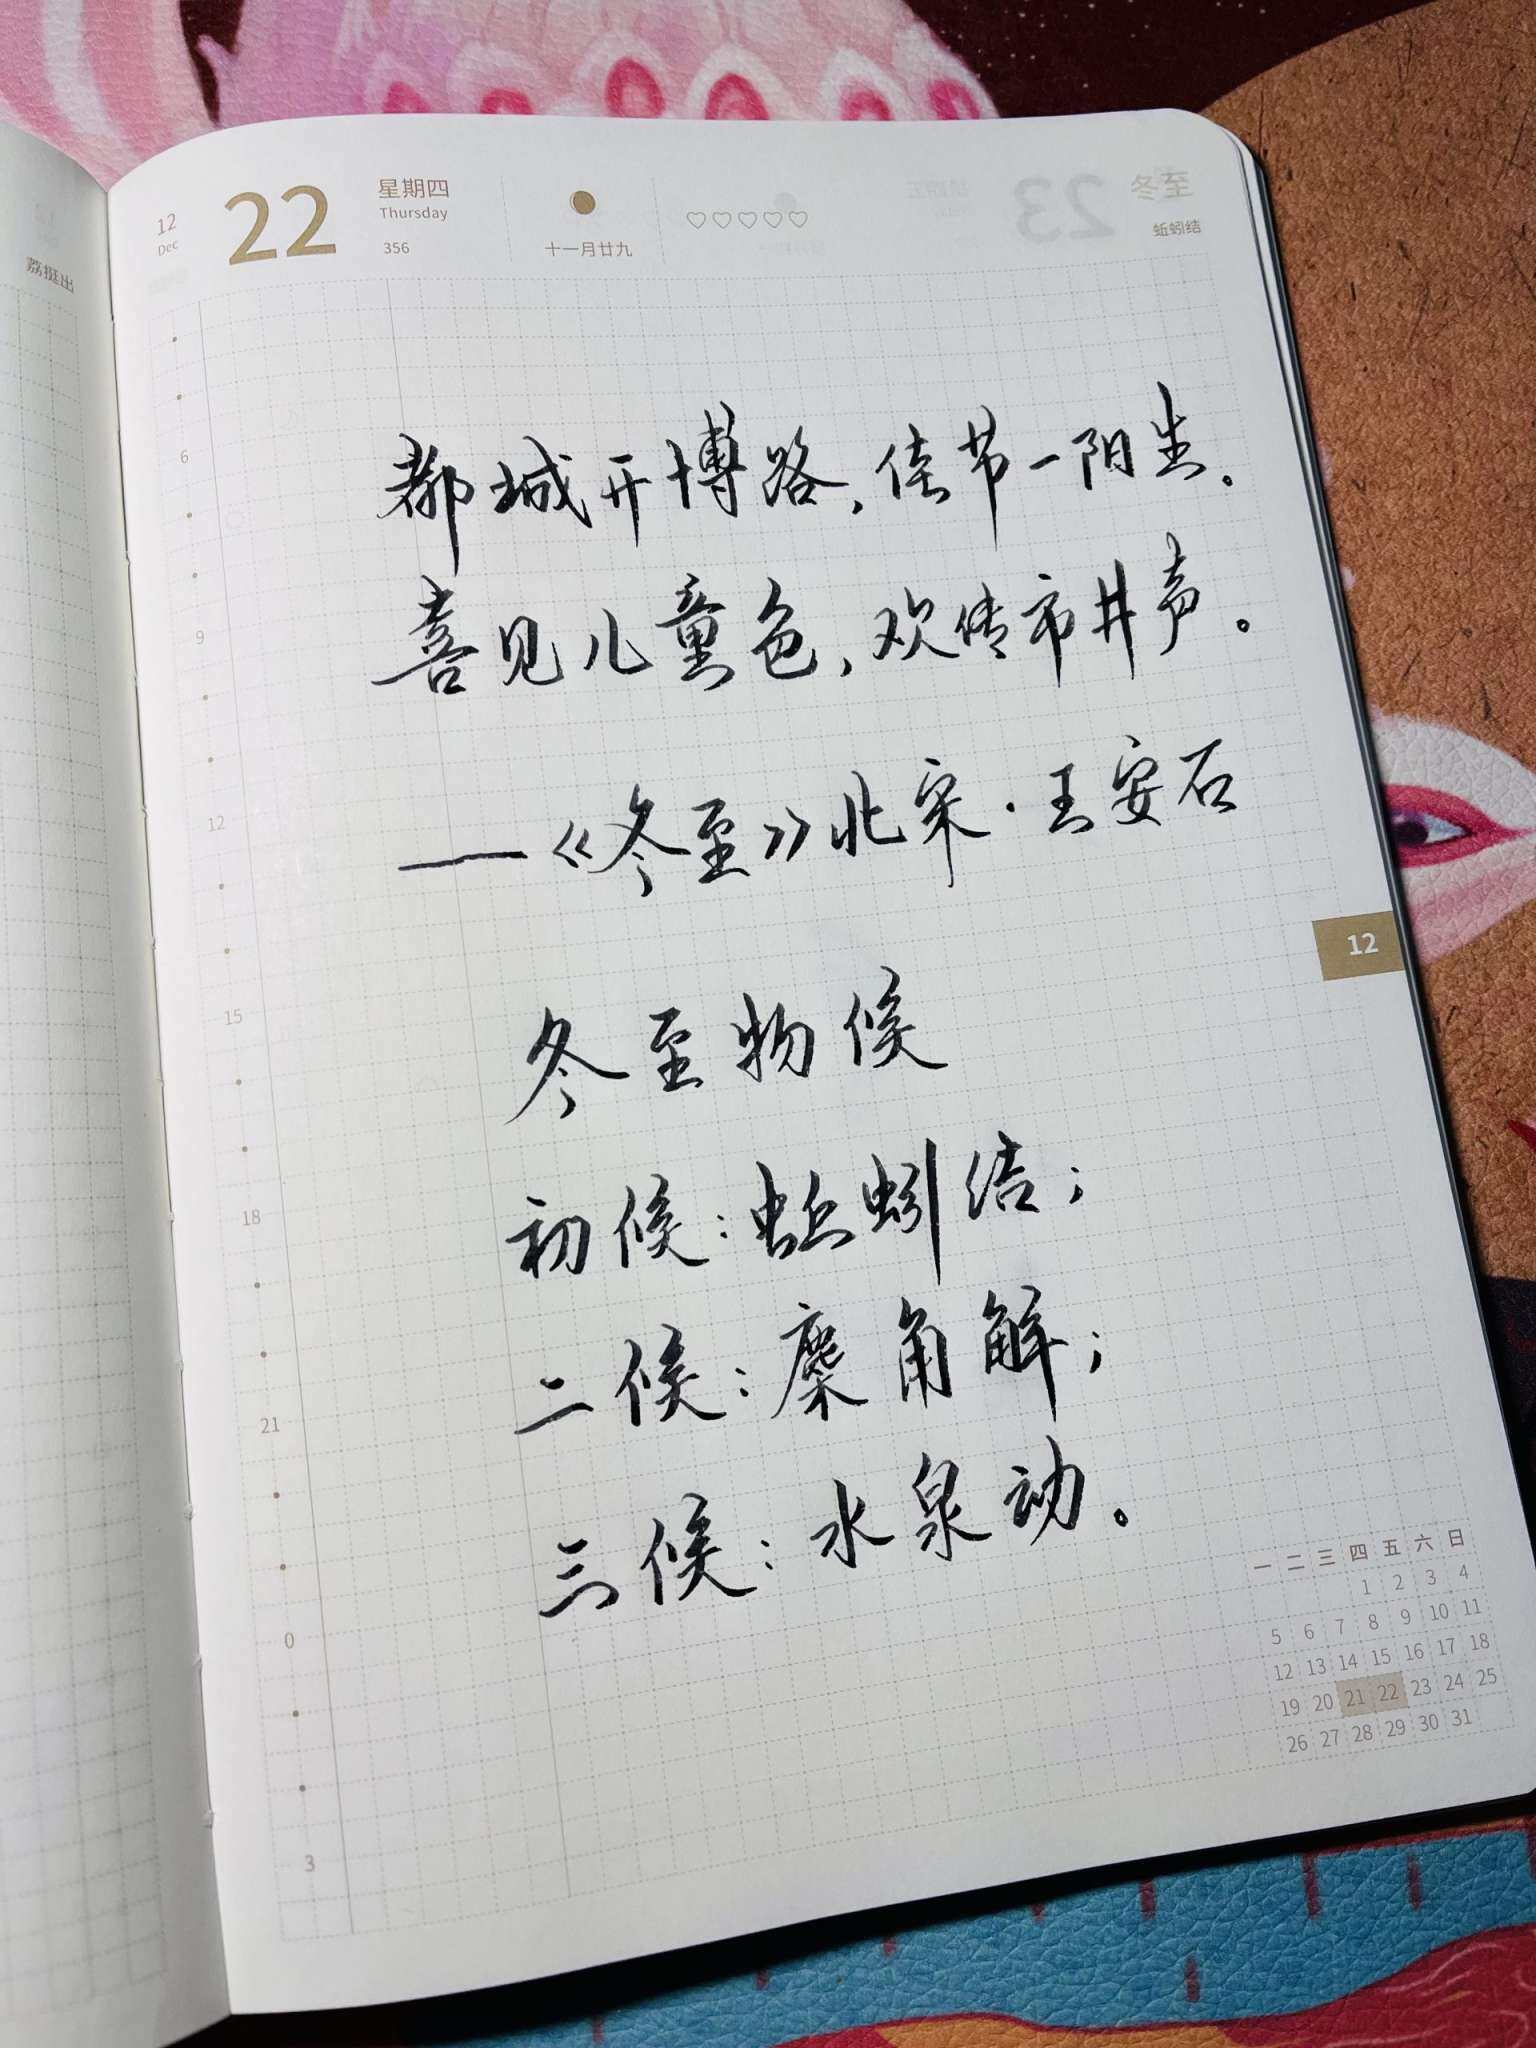 荔挺出
12
Dec
22
星期四
Thursday
356
十一月廿九
冬至
蚯蚓结
都城开博路，佳节一阳生。
喜见儿童色，欢传市井声。
——《冬至》北宋·王安石
冬至物候
初候：蚯蚓结；
二候：麋角解；
三候：水泉动。
6
9
12
15
18
21
0
3
12
一 二 三 四 五 六 日
1 2 3 4
5 6 7 8 9 10 11
12 13 14 15 16 17 18
19 20 21 22 23 24 25
26 27 28 29 30 31